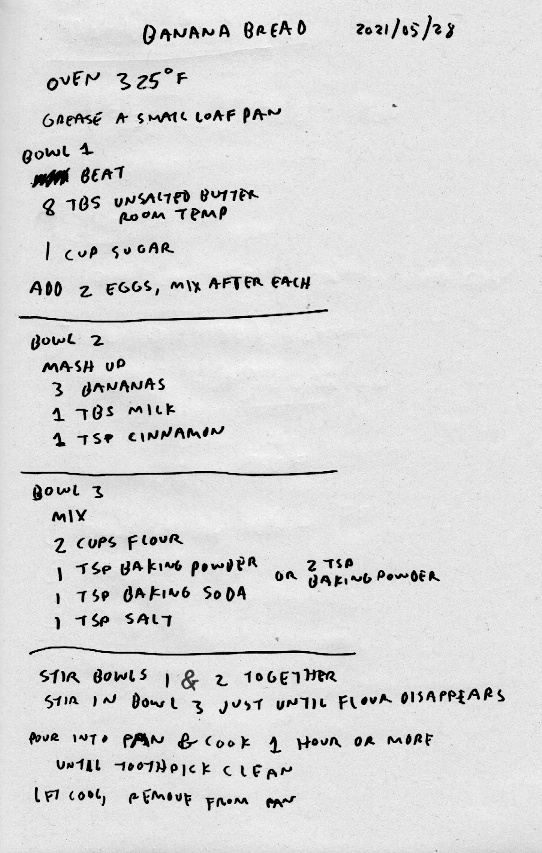 BANANA BREAD 2021/05/28
OVEN 325°F
GREASE A SMALL LOAF PAN
BOWL 1
BEAT
8 TBS UNSALTED BUTTER
ROOM TEMP
1 CUP SUGAR
ADD 2 EGGS, MIX AFTER EACH
BOWL 2
MASH UP
3 BANANAS
1 TBS MILK
1 TSP CINNAMON
BOWL 3
MIX
2 CUPS FLOUR
1 TSP BAKING POWDER OR 2 TSP
1 TSP BAKING SODA BAKING POWDER
1 TSP SALT
STIR BOWLS 1 & 2 TOGETHER
STIR IN BOWL 3 JUST UNTIL FLOUR DISAPPEARS
POUR INTO PAN & COOK 1 HOUR OR MORE
UNTIL TOOTHPICK CLEAN
LET COOL, REMOVE FROM PAN